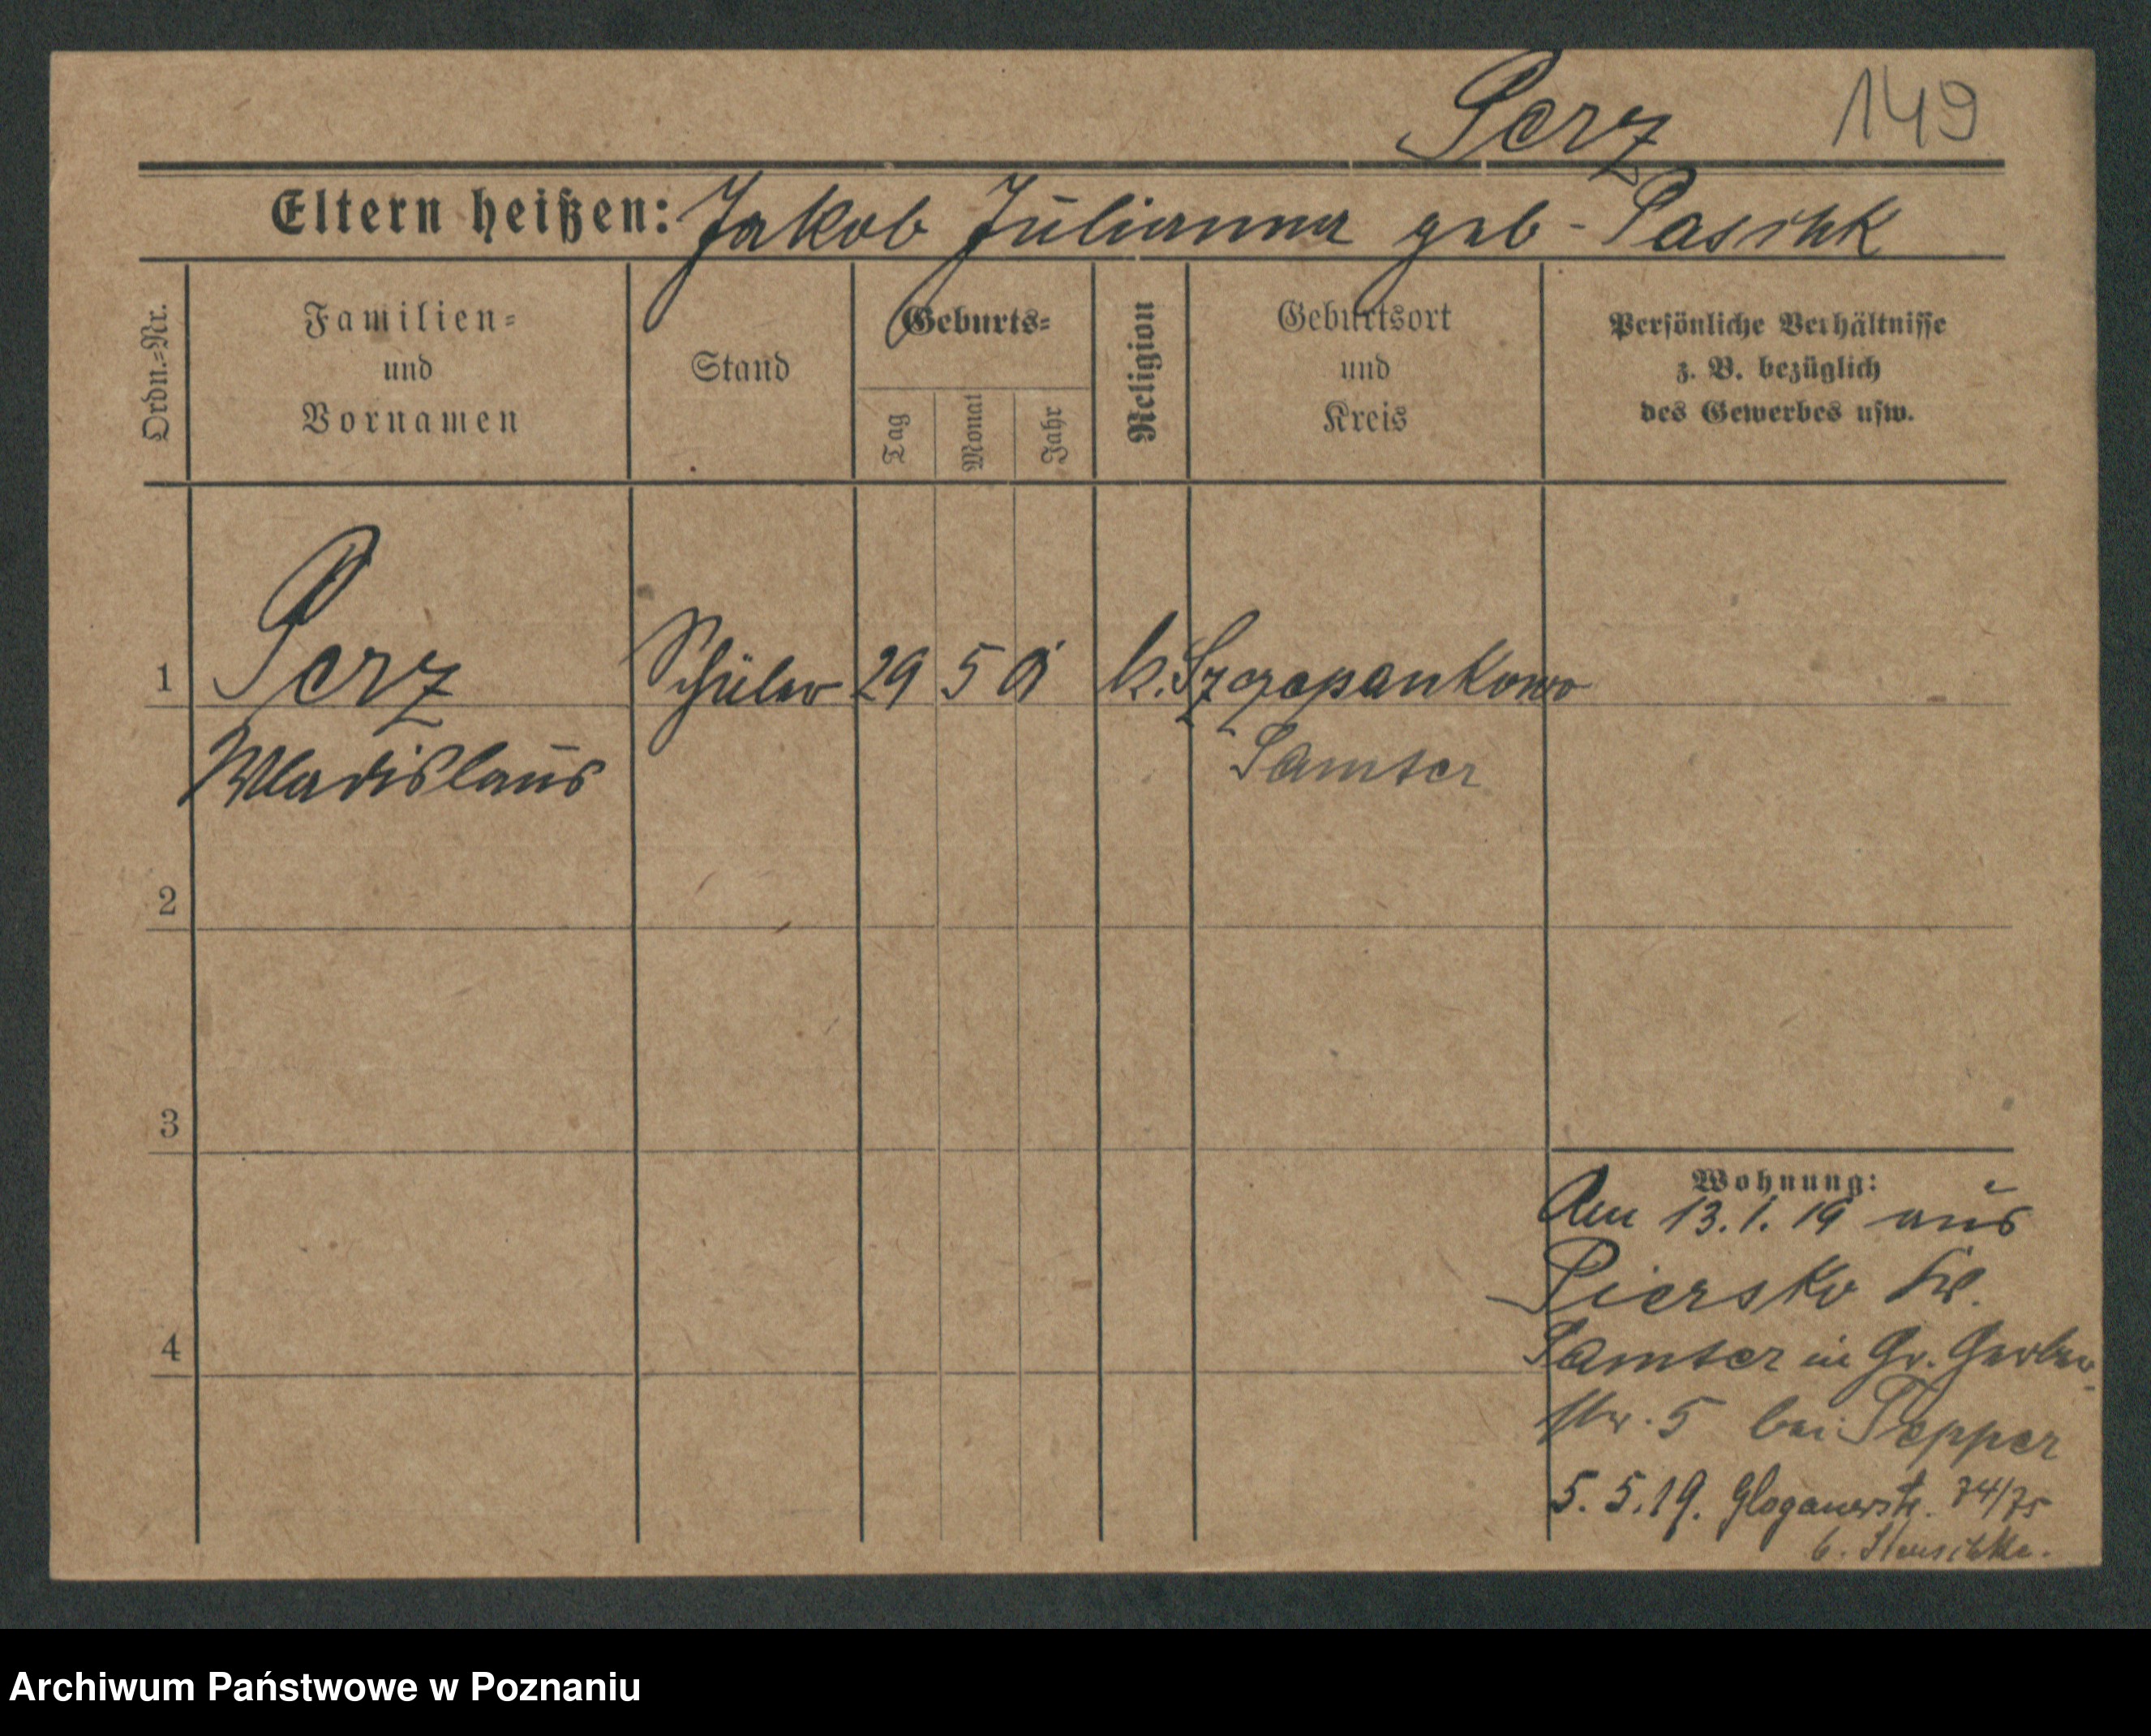 Perz 149
Eltern heißen: Jakob Julianna geb-
Ordn.=Nr.
Familien=
und
Vornamen
Stand
Geburts=
Tag
Monat
Jahr
Religion
Geburtsort
und
Kreis
Persönliche Verhältnisse
z. B. bezüglich
des Gewerbes usw.
1 Perz Schüler 29 5 k. Szczepankowo
Wladislaus Samter
2
3
4
Wohnung:
Am 13.1.19 aus
Piersko Kr.
Samter in Gr. Gerber-
str. 5 bei Tepper
5.5.19. Glogauerstr. 74/75
b.
Archiwum Państwowe w Poznaniu